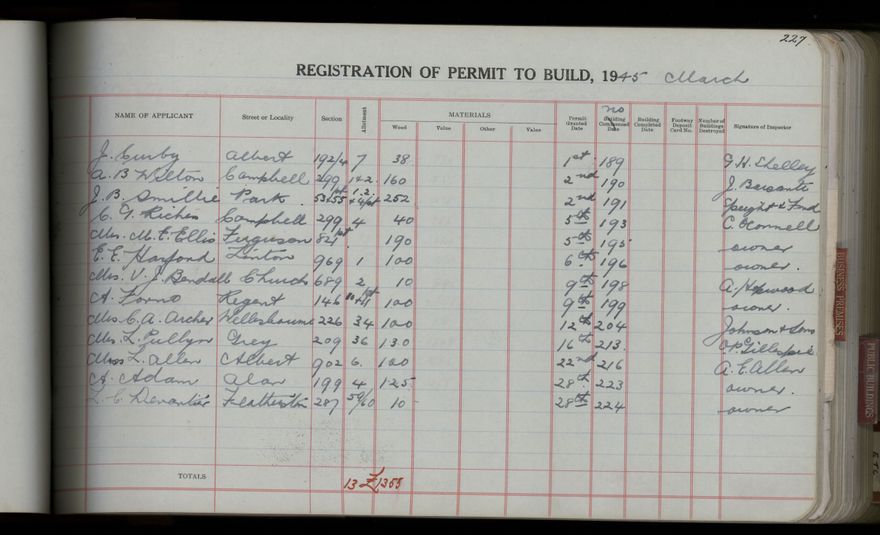 227
REGISTRATION OF PERMIT TO BUILD, 1945 March
NAME OF APPLICANT Street or Locality Section Allotment MATERIALS Wood Value Other Value Permit Granted Date no Building Commenced Date Building Completed Date Footway Deposit Card No. Number of Buildings Destroyed Signature of Inspector
J. Curby Albert 192/4 7 38 1st 189 F. H. Shelley
A. B. Wilton Campbell 299 1+2 160 2nd 190 J.
J. B. Smillie Park 252 2nd 191 Speight &
C. F. Riches Campbell 299 4 40 5th 193 C. O'Connell
Mrs. M. E. Ellis Ferguson 82 pt 190 5th 195 owner
E. E. Linton 969 1 100 6th 196 owner.
Mrs. V. J. Bendall Church 689 2 10 9th 198 A. Hopwood
A. Forno Regent 146 100 9th 199 owner.
Mrs. C. A. Archer Wellesbourne 226 34 100 12th 204 Johnson & Sons
Mrs. L. Pullyn Grey 209 36 130 16th 213 O. P. Gillespie
Miss L. Allen Albert 902 6. 100 22nd 216 A. E. Allen
A. Adam Alan 199 4 125 28th 223 owner.
L. C. Devantier Featherston 287 59/60 10 28th 224 owner
TOTALS 13 £1355
BUSINESS PREMISES
PUBLIC BUILDINGS